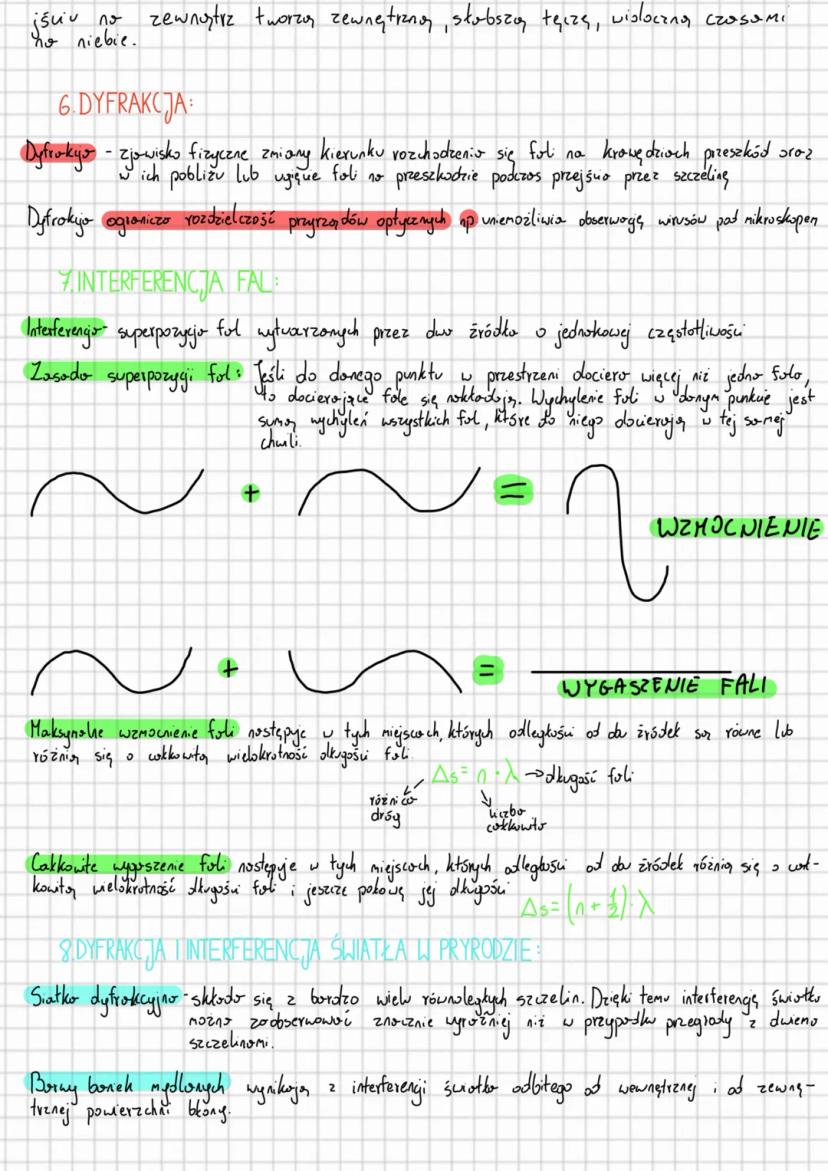 jściu na zewnątrz tworzą zewnętrzną, słabszą tęczę, widoczną czasami
na niebie.
6.DYFRAKCJA:
Dyfrakcja - zjawisko fizyczne zmiany kierunku rozchodzenia się fali na krawędziach przeszkód oraz
w ich pobliżu lub ugięcie fali na przeszkodzie podczas przejścia przez szczelinę
Dyfrakcja ogranicza rozdzielczość przyrządów optycznych np uniemożliwia obserwację wirusów pod mikroskopem
7.INTERFERENCJA FAL:
Interferencja - superpozycja fal wytwarzanych przez dwa źródła o jednakowej częstotliwości
Zasada superpozycji fal: Jeśli do danego punktu w przestrzeni dociera więcej niż jedna fala,
to docierające fale się nakładają. Wychylenie fali w danym punkcie jest
sumą wychyleń wszystkich fal, które do niego docierają w tej samej
chwili.
+ =
WZMOCNIENIE
+ =
WYGASZENIE FALI
Maksymalne wzmocnienie fali następuje w tych miejscach, których odległości od du źródeł są równe lub
różnią się o całkowitą wielokrotność długości fali.
Δs= n · λ → długość fali
różnica
dróg
liczba
całkowita
Całkowite wygaszenie fali następuje w tych miejscach, których odległości od du źródeł różnią się o cał-
kowitą wielokrotność długości fali i jeszcze połowę jej długości
Δs=(n + 1/2)· λ
8.DYFRAKCJA I INTERFERENCJA ŚWIATŁA W PRYRODZIE:
Siatka dyfrakcyjna - składa się z bardzo wielu równoległych szczelin. Dzięki temu interferencję światła
można zaobserwować znacznie wyraźniej niż w przypadku przegrody z dwiema
szczelinami.
Barwy baniek mydlanych wynikają z interferencji światła odbitego od wewnętrznej i od zewnę-
trznej powierzchni błony.